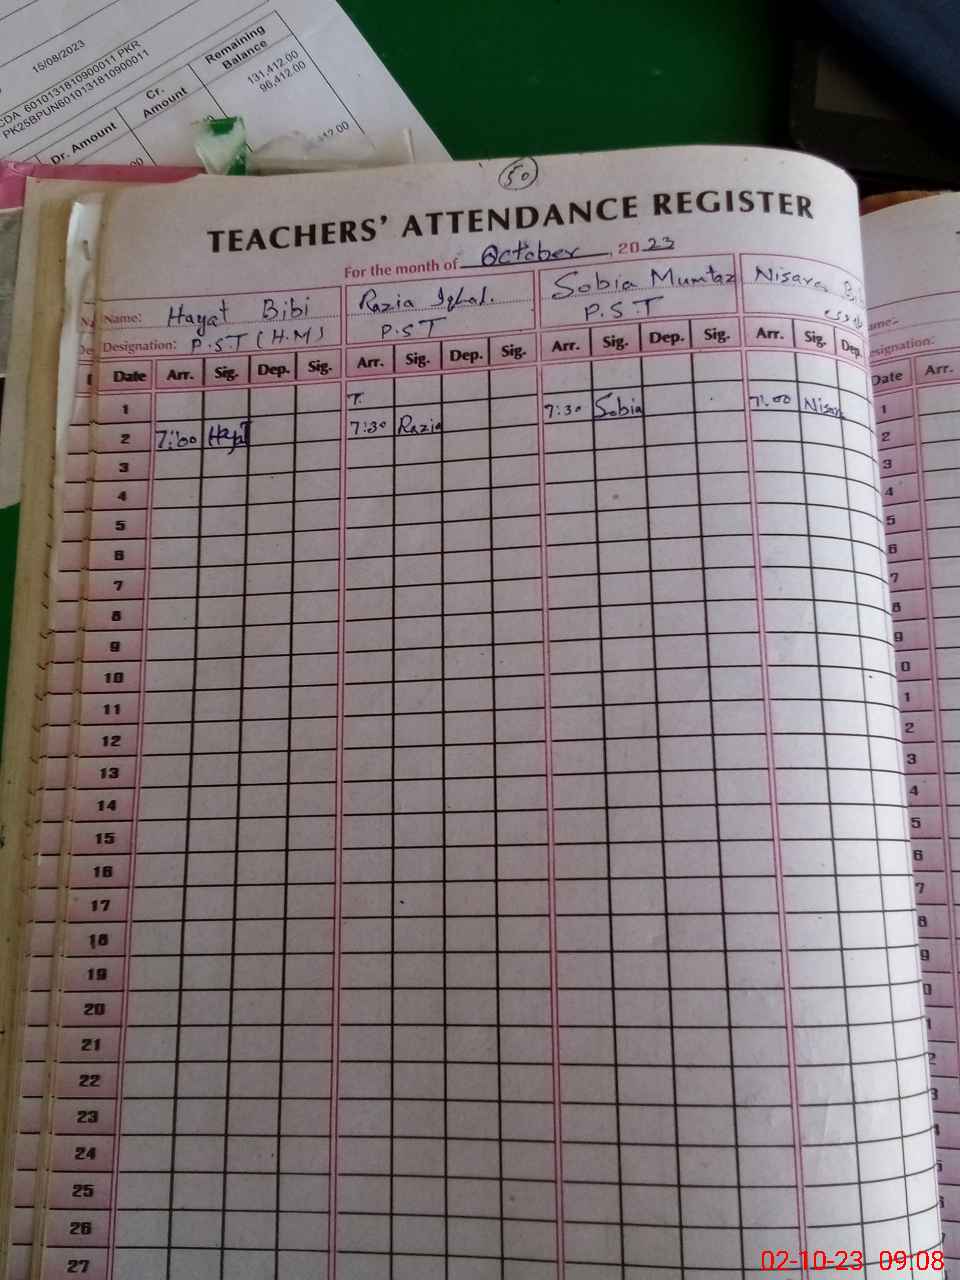 15/08/2023
CDA 6010131810900011 PKR
PK25BPUN6010131810900011
Dr. Amount Cr. Amount Remaining Balance
131,412.00
96,412.00
50
TEACHERS' ATTENDANCE REGISTER
For the month of October, 2023
Name: Hayat Bibi Razia Iqbal. Sobia Mumtaz Nisara
Designation: P.S.T (H.M) P.S.T P.S.T
Date Arr. Sig. Dep. Sig. Arr. Sig. Dep. Sig. Arr. Sig. Dep. Sig. Arr. Sig. Dep. Date Arr.
1 7:30 Sobia 7:00 Nisara 1
2 7:00 Hayat 7:30 Razia 2
3 3
4 4
5 5
6 6
7 7
8 8
9 9
10
11
12
13
14
15
16
17
18
19
20
21
22
23
24
25
26
27
02-10-23 09:08